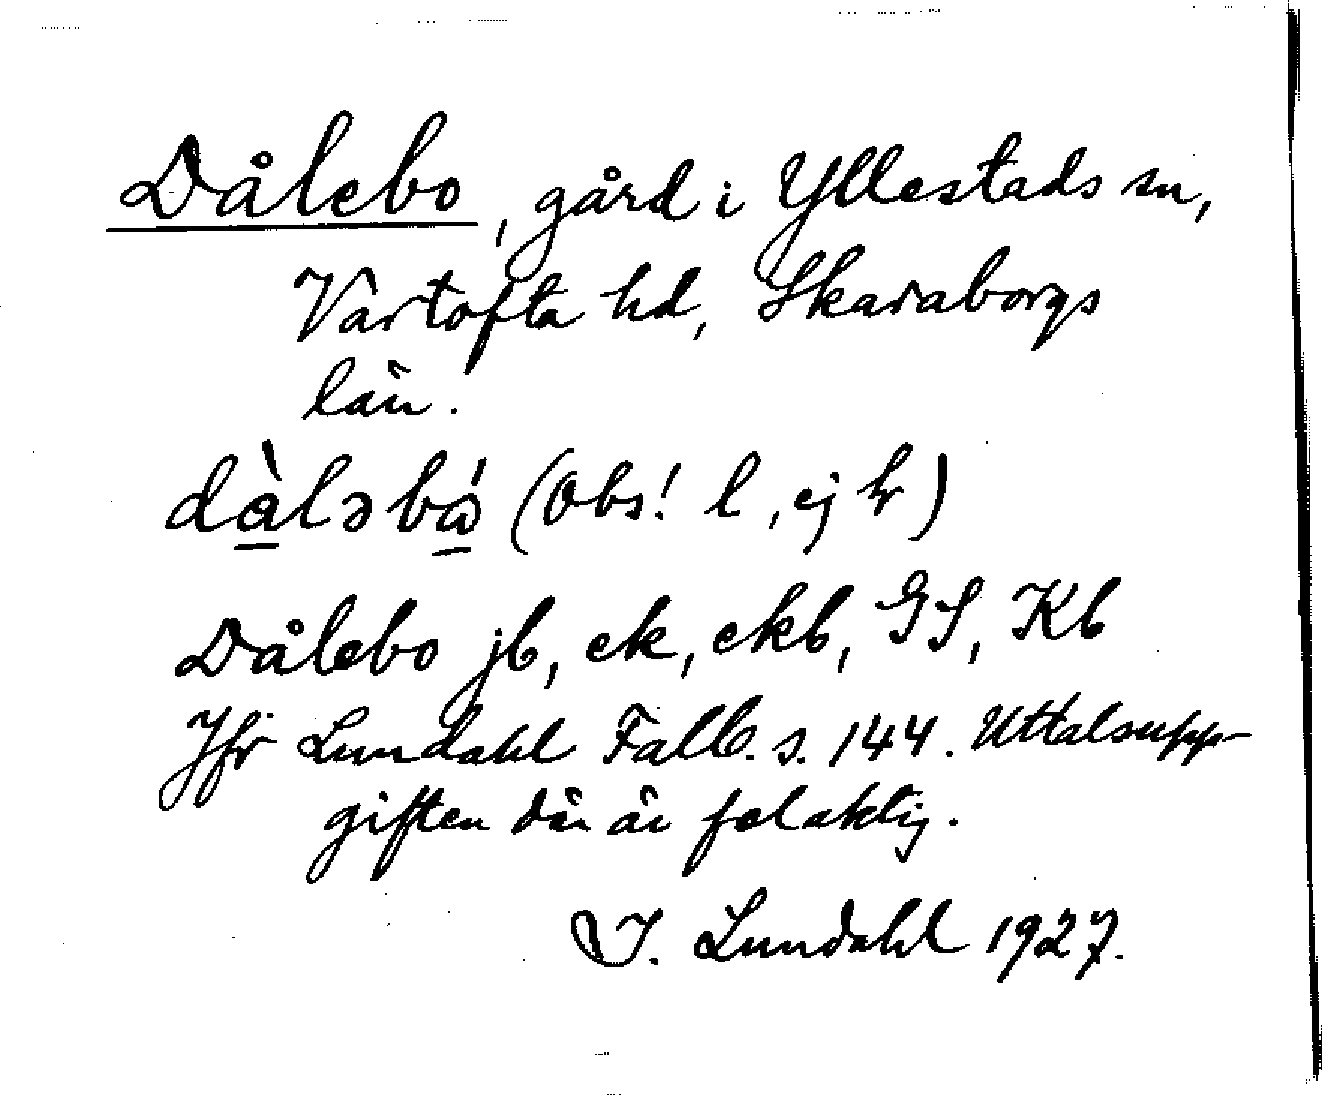 Dålebo, gård i Yllestads sn,
Vartofta hd, Skaraborgs
län.
dàləbá (Obs! l, ej hr)
Dålebo jb, ek, ekb, GS, Kb
Jfr Lundahl Falb. s. 144. Uttalsupp-
giften där är felaktig.
I. Lundahl 1927.